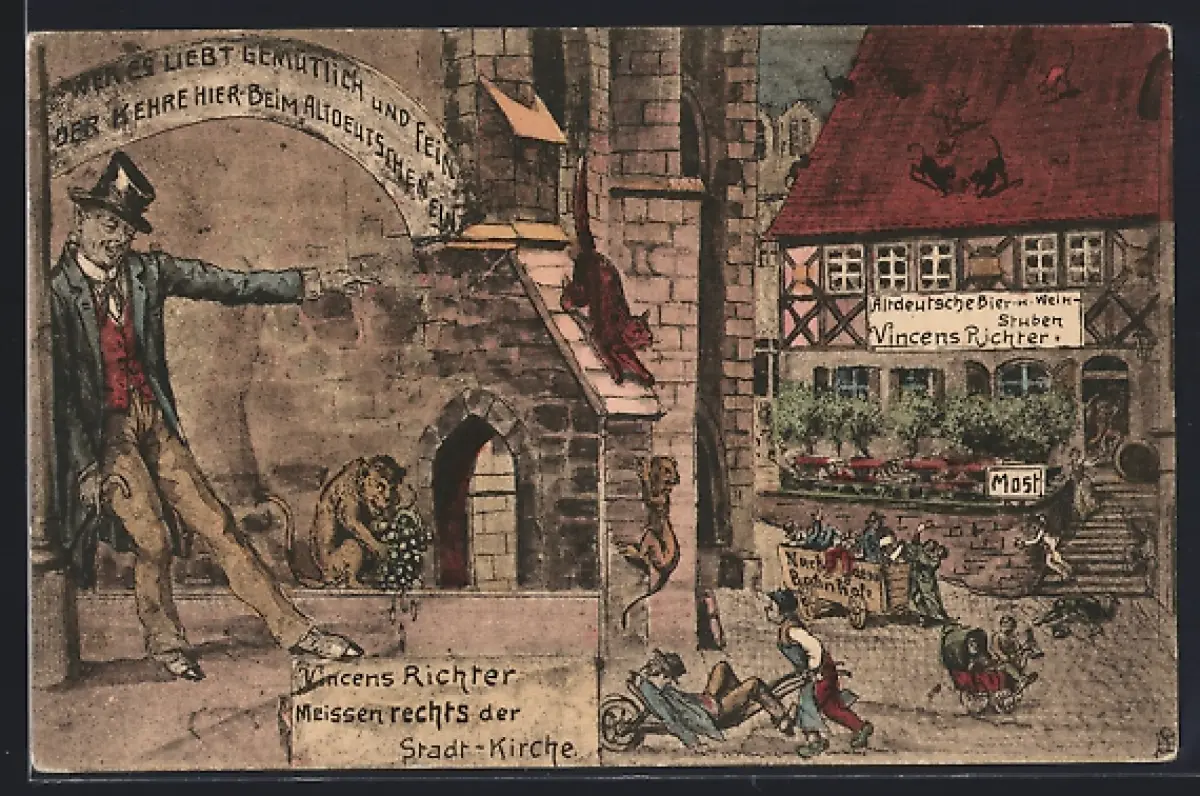 WEN ES LIEBT GEMÜTLICH UND FEIN
DER KEHRE HIER BEIM ALTDEUTSCHEN EIN
Altdeutsche Bier- u. Wein-
Stuben
Vincens Richter.
Most
Nach dem
Bahnhofe
Vincens Richter
Meissen rechts der
Stadt-Kirche.